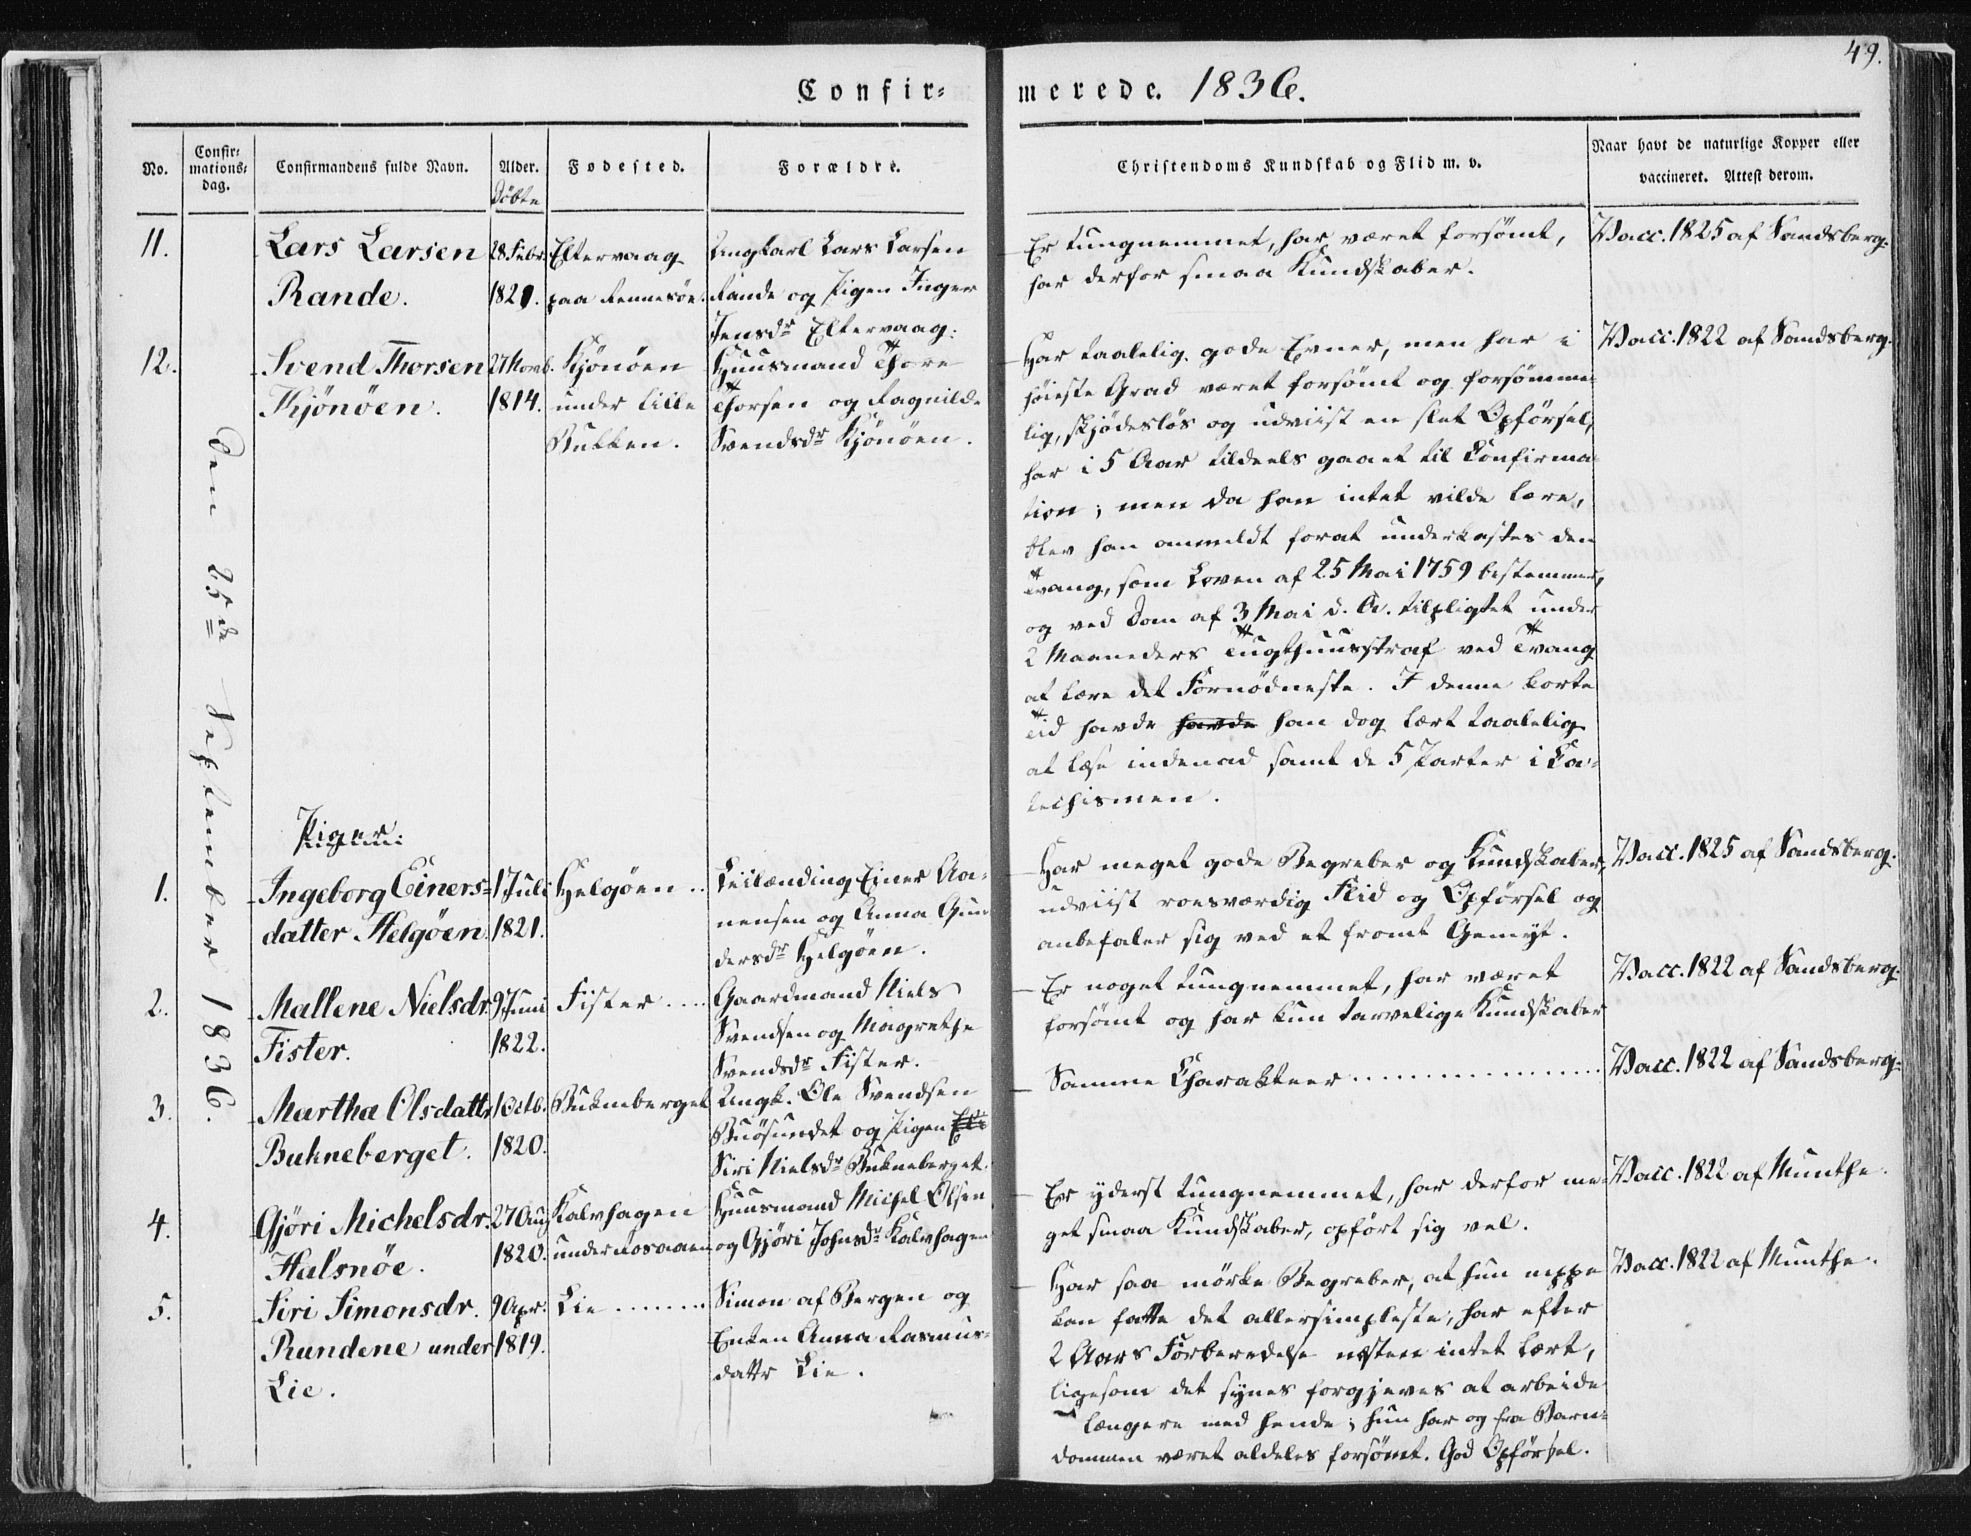 49.
Confir= merede. 1836.
No.
Confir=
mations=
dag.
Confirmandens fulde Navn.
Alder.
Döbte
Fødested.
Forældre.
Christendoms Kundskab og Flid m. v.
Naar havt de naturlige Kopper eller
vaccineret. Attest derom.
Den 25de September 1836.
11.
Lars Larsen
Rande.
28 Febr.
1821.
Eltervaag
paa Rennesöe.
Ungkarl Lars Larsen
Rande og Pigen Inger
Jensdr Eltervaag.
Er tungnemmet, har været forsömt,
har derfor smaa Kundskaber.
Vacc. 1825 af Sandsberg.
12.
Svend Thorsen
Kjönöen.
27 Novb.
1814.
Kjönöen
under Lille
Bukken.
Huusmand Thore
Thorsen og Ragnilde
Svendsdr Kjönöen.
Har taalelig gode Evner, men har i
höieste Grad været forsömt og forsömme=
lig, skjödeslös og udviist en slet Opförsel,
har i 5 Aar tildeels gaaet til Confirma=
tion; men da han intet vilde lære,
blev han anmeldt forat underkastes den
Tvang, som Loven af 25 Mai 1759 bestemmer,
og ved Dom af 3 Mai d. A. tilpligtet under
2 Maaneders Tugthuusstraf ved Tvang
at lære det Fornödneste. I denne korte
Tid havde havde han dog lært taalelig
at læse indenad samt de 5 Parter i Ca=
techismen.
Vacc. 1822 af Sandsberg.
Piger.
1.
Ingeborg Einers=
datter Helgöen.
17 Juli
1821.
Helgöen ..
Leilænding Einer Aa=
nensen og Anna Gun=
dersdr Helgöen.
Har meget gode Begreber og Kundskaber,
udviist roesværdig Flid og Opförsel og
anbefaler sig ved et fromt Gemyt.
Vacc. 1825 af Sandsberg.
2.
Mallene Nielsdr.
Fister.
9 Juni
1822.
Fister ....
Gaardmand Niels
Svendsen og Magrethe
Svendsdr Fister.
Er noget tungnemmet, har været
forsömt og har kun tarvelige Kundskaber
Vacc. 1822 af Sandsberg.
3.
Martha Olsdattr
Bukneberget.
1 Octb.
1820.
Bukneberget
Ungk. Ole Svendsen
Buösundet og Pigen
Siri Nielsdr Bukneberget.
Samme Charakteer ..................
Vacc. 1822 af Sandsberg.
4.
Gjöri Michelsdr.
Halsnöe.
27 Aug
1820.
Kalvhagen
under Rosaaen
Huusmand Michel Olsen
og Gjöri Johnsdr Kalvhagen
Er yderst tungnemmet, har derfor me=
get smaa Kundskaber, opfört sig vel.
Vacc. 1822 af Munthe.
5.
Siri Simonsdr.
Rundene under
Lie.
9 Apr.
1819.
Lie ........
Simon af Bergen og
Enken Anna Rasmus=
dattr Lie.
Har saa mörke Begreber, at hun neppe
kan fatte det allersimpleste, har efter
2 Aars Forberedelse næsten intet lært,
ligesom det synes forgjeves at arbeide
længere med hende; hun har og fra Barn=
dommen været aldeles forsömt. God Opförsel.
Vacc. 1822 af Munthe.